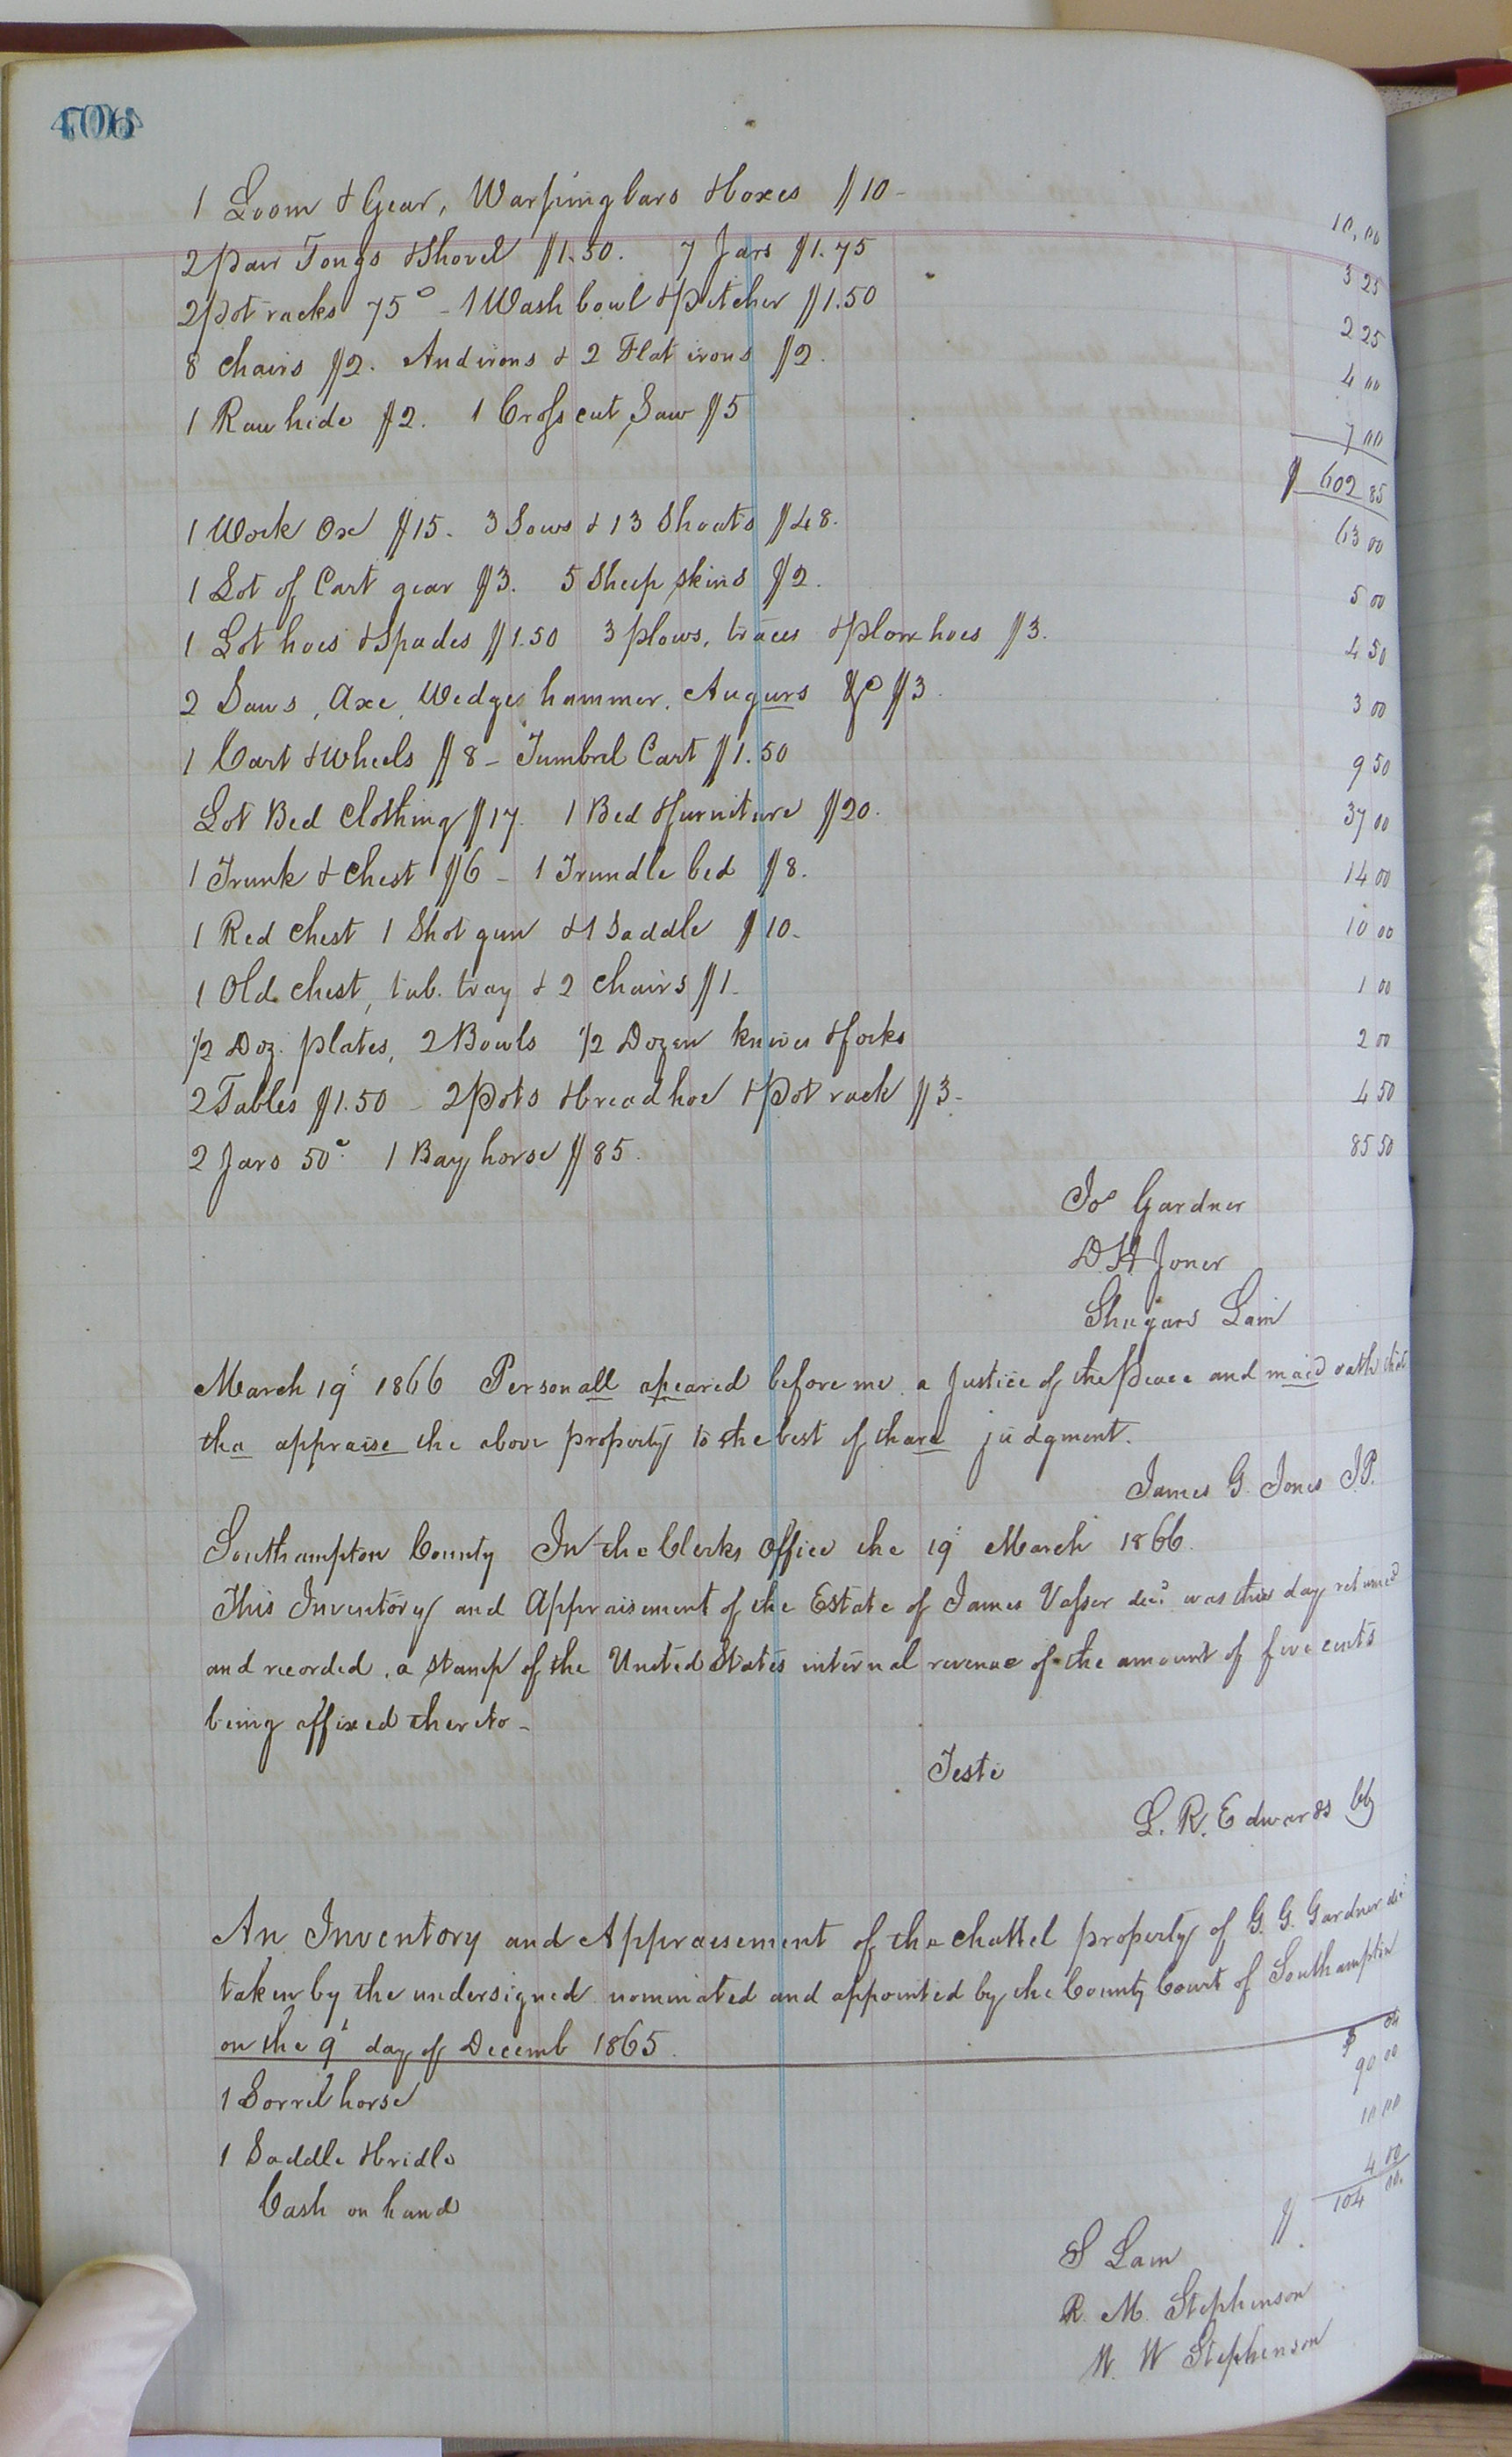 406
1 Loom & Gear, Warping bars & boxes $10 - 10.00
2 Pair Tongs & Shovel $1.50. 7 Jars $1.75 3 25
2 Pot racks 75c - 1 Wash bowl & Pitcher $1.50 2 25
8 chairs $2. Andirons & 2 Flat irons $2. 4 00
1 Raw hide $2. 1 Cross cut Saw $5 7 00
$ 602 85
1 Work Ox $15. 3 Sows & 13 Shoats $48. 63 00
1 Lot of Cart gear $3. 5 Sheep skins $2. 5 00
1 Lot hoes & Spades $1.50 3 plows, traces & Plow hoes $3. 4 50
2 Saws, Axe, Wedges hammer, Augurs &c $3. 3 00
1 Cart & Wheels $8 - Tumbrel Cart $1.50 9 50
Lot Bed Clothing $17. 1 Bed & furniture $20. 37 00
1 Trunk & Chest $6 - 1 Trundle bed $8. 14 00
1 Red Chest 1 Shot gun & 1 Saddle $10. 10 00
1 Old chest, tub. tray & 2 chairs $1. 1 00
1/2 Doz. plates, 2 Bowls 1/2 Dozen knives & forks 2 00
2 Tables $1.50 - 2 Pots & bread hoe & Pot rack $3. 4 50
2 Jars 50c. 1 Bay horse $85. 85 50
Jos Gardner
D. H. Joner
Shugars Lain
March 19' 1866 Personall apeared before me, a Justice of the Peace and maid oath that
tha appraise the above property to the best of thare judgment.
James G. Jones J.P.
Southampton County In the Clerks Office the 19' March 1866.
This Inventory and Appraisement of the Estate of James Vasser decd. was this day returned
and recorded, a stamp of the United States internal revenue of the amount of five cents
being affixed thereto -
Teste
L. R. Edwards Clk
An Inventory and Appraisement of the chattel property of G. G. Gardner decd
taken by the undersigned nominated and appointed by the County Court of Southampton
on the 9' day of Decemb 1865.
$ cts
1 Sorrel horse 90 00
1 Saddle & bridle 10 00
Cash on hand 4 00
$ 104 00.
S Lain
R. M. Stephenson
W. W Stephenson